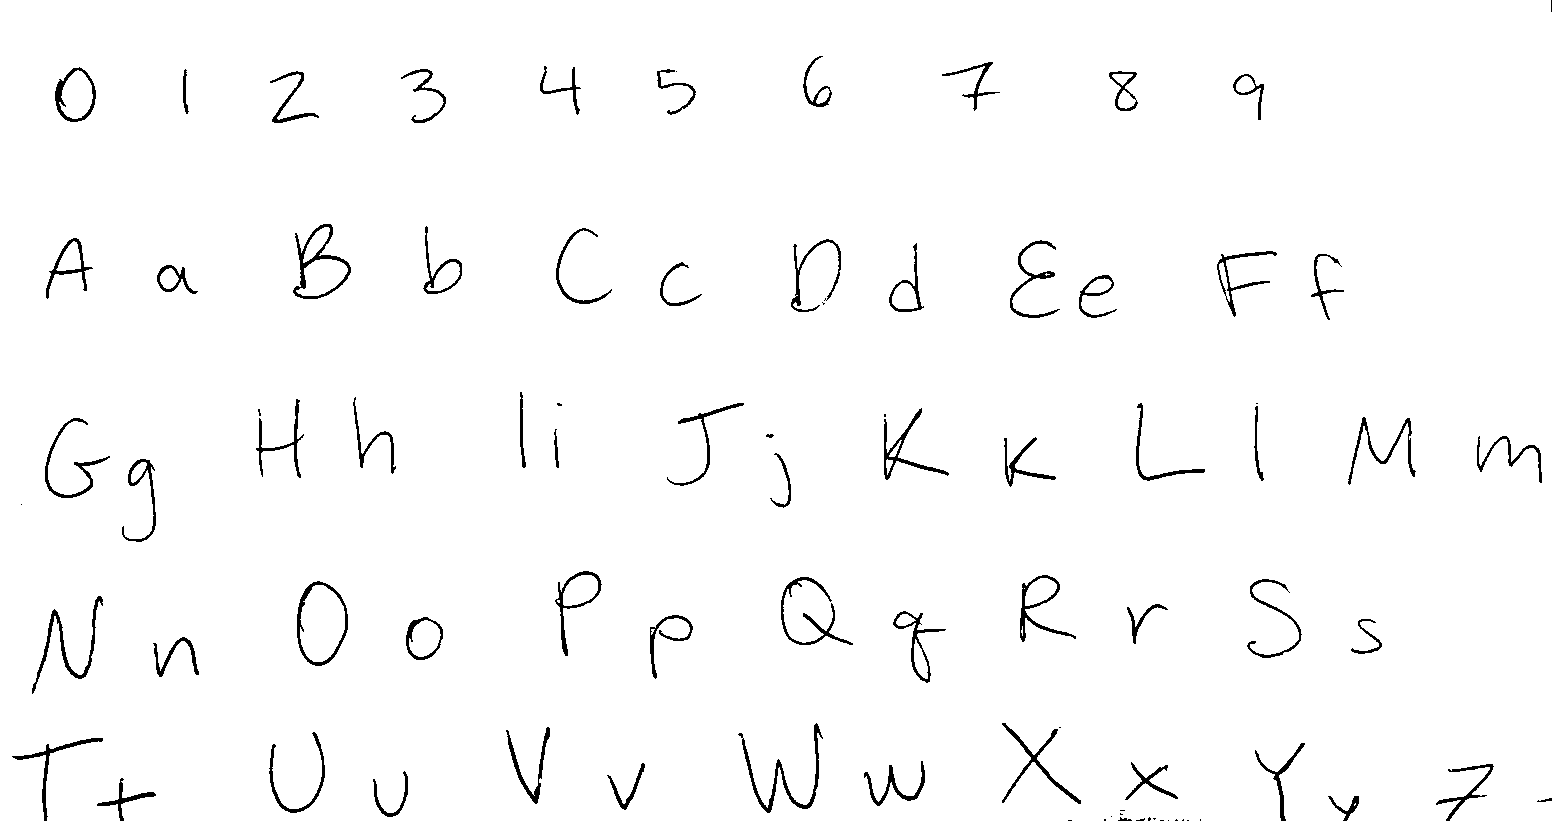 0 1 2 3 4 5 6 7 8 9
A a B b C c D d E e F f
G g H h I i J j K k L l M m
N n O o P p Q q R r S s
T t U u V v W w X x Y y Z